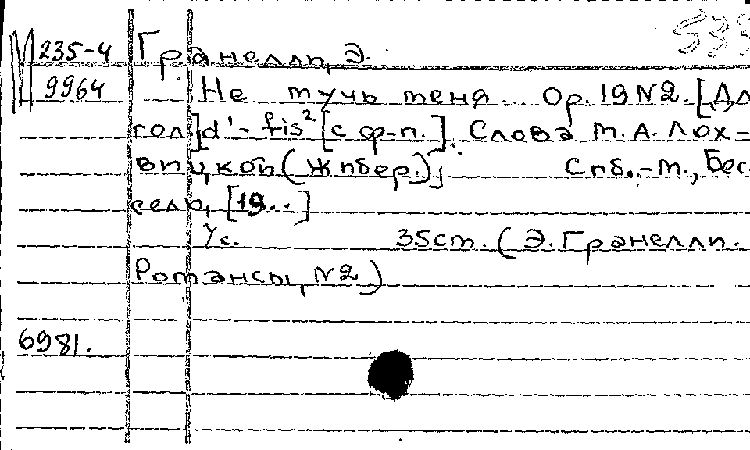 М 235-4 Гранелли, Э. 539
9964 Не мучь меня... Op. 19 N2. [Для
гол.] d'-fis² [с ф-п.]. Слова М. А. Лох=
вицкой (Жибер.); Спб.-М., Бес
сель, [19..]
7с. 35см. (Э. Гранелли.
Романсы, N2)
6981.